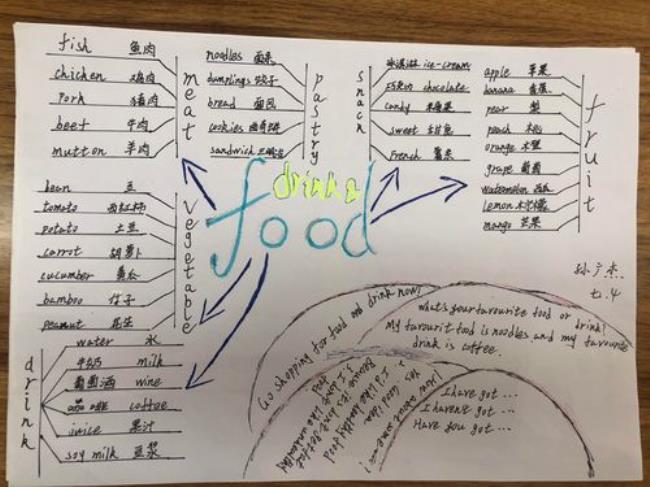 fish 鱼肉
chicken 鸡肉
pork 猪肉
beef 牛肉
mutton 羊肉
meat
noodles 面条
dumplings 饺子
bread 面包
cookies 曲奇饼
sandwich 三明治
pastry
snack
冰淇淋 ice-cream
巧克力 chocolate
candy 糖果
sweet 甜
French 薯条
apple 苹果
banana 香蕉
pear 梨
peach 桃
orange
grape 葡萄
watermelon 西瓜
lemon 柠檬
mango 芒果
fruit
drink &
food
bean 豆
tomato 西红柿
potato 土豆
carrot 胡萝卜
cucumber 黄瓜
bamboo 竹子
peanut 花生
vegetable
drink
water 水
牛奶 milk
葡萄酒 wine
coffee
juice 果汁
soy milk 豆浆
七.4
Go shopping for food and drink now!
what's your favourite food or drink?
My favourit food is noodles and my favourite
drink is coffee.
How about some
Yes, Good idea
I like healthy food
Because it's
I don't like unhealthy
I have got ...
I haven't got ...
Have you got ...